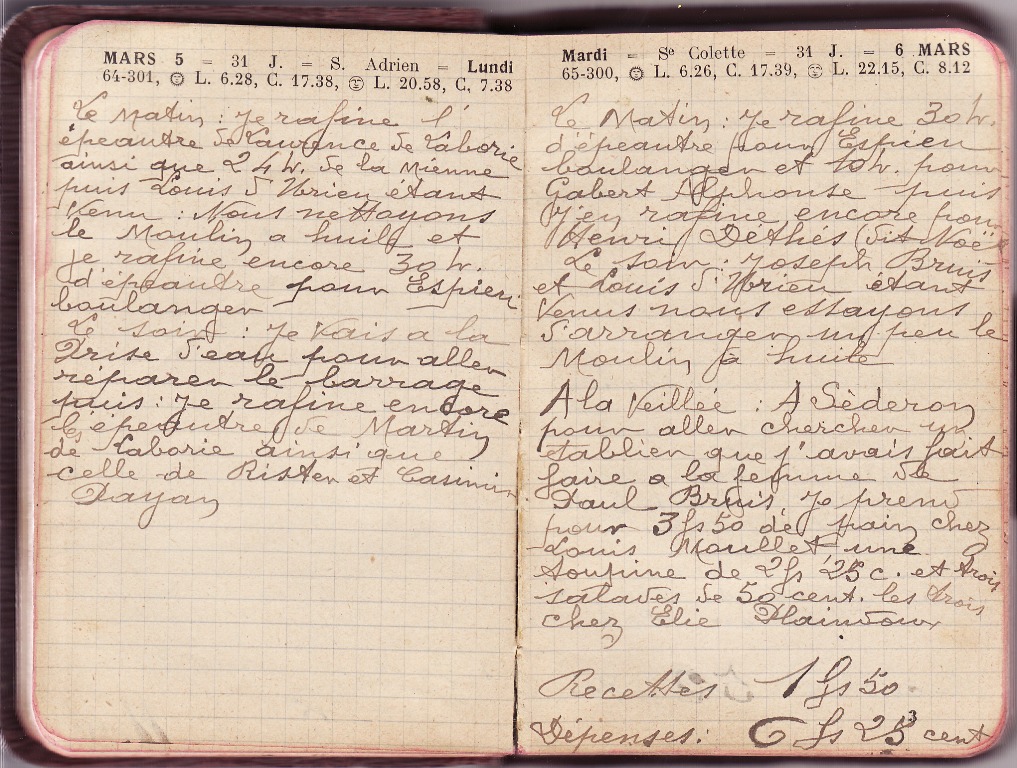 MARS 5 = 31 J. = S. Adrien = Lundi
64-301, L. 6.28, C. 17.38, L. 20.58, C, 7.38
Le Matin : je rafine l'
épeautre de Laurence de Laborie
ainsi que 24 h. de la Mienne
puis Louis d'Ubrieu étant
Venu : Nous nettoyons
le Moulin a huile et
je rafine encore 30 h.
d'épeautre pour Espieu
boulanger
Le soir : Je Vais a la
Prise d'eau pour aller
réparer le barrage
puis : je rafine encore
l'épeautre de Martin
de Laborie ainsi que
celle de Rister et Casimir
Dayan
Mardi = Se Colette = 31 J. = 6 MARS
65-300, L. 6.26, C. 17.39, L. 22.15, C. 8.12
Le Matin : Je rafine 30 h.
d'épeautre pour Espieu
boulanger et 10 h. pour
Gabert Alphonse puis
j'en rafine encore pour
Henri Déthés (dit Noë
Le soir : Joseph Bruis
et Louis d'Ubrieu étant
Venus nous essayons
d'arranger un peu le
Moulin a huile
A la Veillée : A Séderon
pour aller chercher un
tablier que j'avais fait
faire a la femme de
Paul Bruis, je prend
pour 3 fs 50 de pain chez
Louis Moullet une
toupine de 2 fs 25 c. et trois
salades de 50 cent. les trois
chez Elie Plaindoux
Recettes 1 fs 50
Dépenses : 6 fs 25 cent